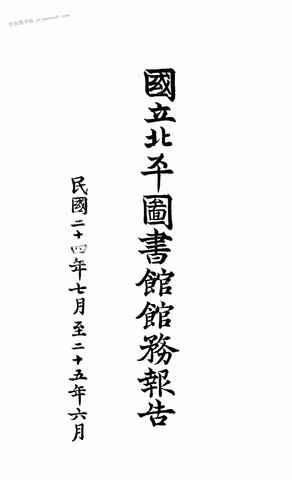 國立北平圖書館館務報告
民國二十四年七月至二十五年六月